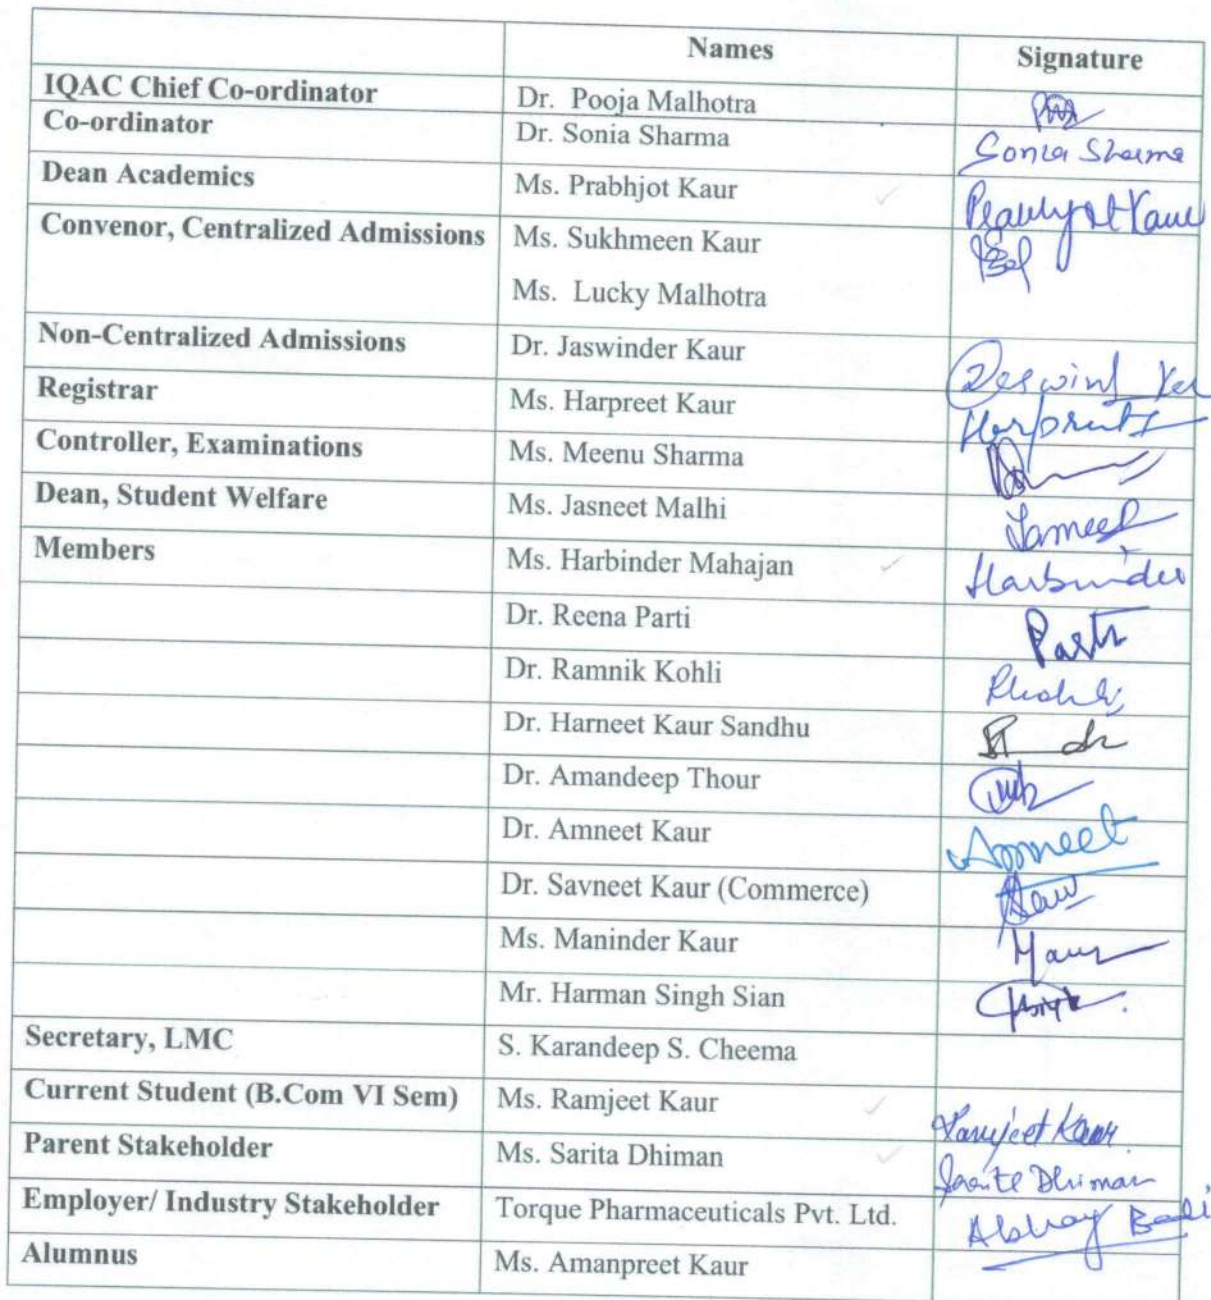 Names Signature
IQAC Chief Co-ordinator Dr. Pooja Malhotra
Co-ordinator Dr. Sonia Sharma Sonia Sharma
Dean Academics Ms. Prabhjot Kaur Kaur
Convenor, Centralized Admissions Ms. Sukhmeen Kaur
Ms. Lucky Malhotra
Non-Centralized Admissions Dr. Jaswinder Kaur
Registrar Ms. Harpreet Kaur
Controller, Examinations Ms. Meenu Sharma
Dean, Student Welfare Ms. Jasneet Malhi
Members Ms. Harbinder Mahajan Harbinder
Dr. Reena Parti Parti
Dr. Ramnik Kohli
Dr. Harneet Kaur Sandhu
Dr. Amandeep Thour
Dr. Amneet Kaur Amneet
Dr. Savneet Kaur (Commerce)
Ms. Maninder Kaur
Mr. Harman Singh Sian
Secretary, LMC S. Karandeep S. Cheema
Current Student (B.Com VI Sem) Ms. Ramjeet Kaur Kaur
Parent Stakeholder Ms. Sarita Dhiman Dhiman
Employer/ Industry Stakeholder Torque Pharmaceuticals Pvt. Ltd. Abhay Bali
Alumnus Ms. Amanpreet Kaur